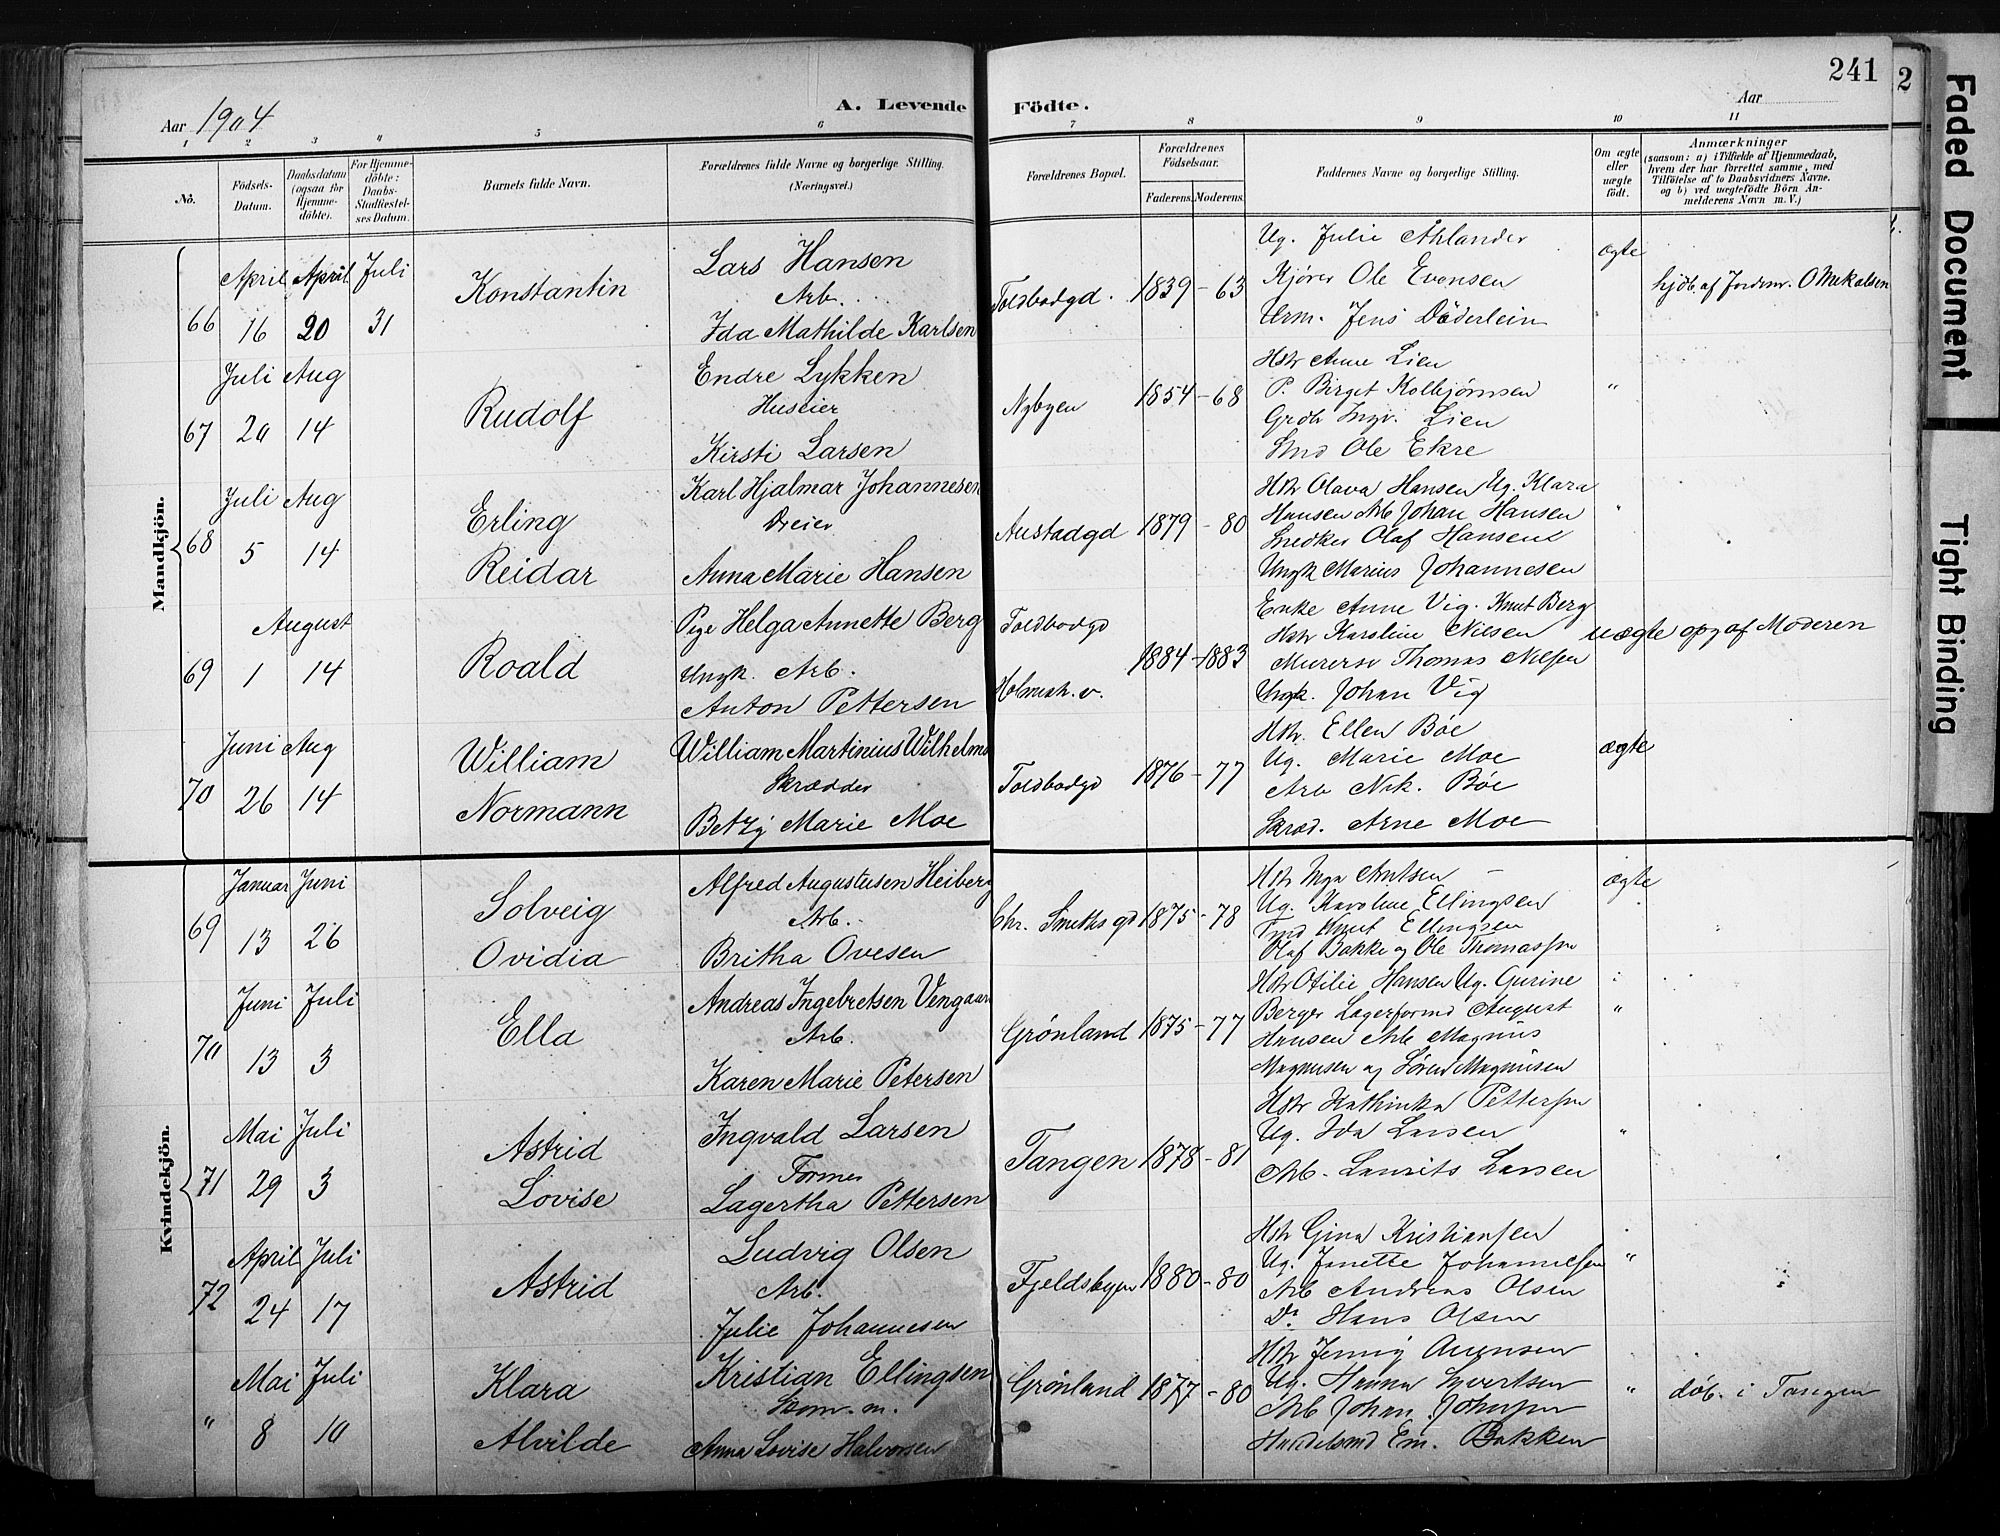 241
2
Faded Document
Tight Binding
Aar 1904
A. Levende Födte.
Aar
1 2 3 4 5 6 7 8 9 10 11
No.
Födsels-Datum.
Daabsdatum (ogsaa for Hjemmedöbte).
For Hjemmedöbte: Daabs-Stadfæstelses Datum.
Barnets fulde Navn.
Forældrenes fulde Navne og borgerlige Stilling. (Næringsvei.)
Forældrenes Bopæl.
Forældrenes Födselsaar.
Faderens. Moderens.
Faddernes Navne og borgerlige Stilling.
Om ægte eller uægte födt.
Anmærkninger (saasom: a) i Tilfælde af Hjemmedaab, hvem der har forrettet samme, med Tilföielse af to Daabsvidners Navne. og b) ved uægtefödte Börn Anmelderens Navn m. V.)
Mandkjön.
66
April 16
April 20
Juli 31
Konstantin
Lars Hansen
Arb.
Ida Mathilde Karlsen
Toldbodgd.
1839 - 63
Ug. Julie Ahlander
Kjører Ole Evensen
Urm. Jens Döderlein
ægte
hjdb. af Jordm. O Mekalsen
67
Juli 20
Aug 14
Rudolf
Endre Lykken
Huseier
Kirsti Larsen
Nybyen
1854 - 68
Hstr Anne Lien
P. Birget Kolbjørnsen
Grdb Ingv. Lien
Smd Ole Ekre
"
68
Juli 5
Aug 14
Erling
Reidar
Karl Hjalmar Johannesen
Dreier
Anna Marie Hansen
Austadgd
1879 - 80
Hstr Olava Hansen Ug. Klara
Hansen Arb Johan Hansen
Snedker Olaf Hansen
Ungk Marius Johannesen
"
69
August
1 14
Roald
Pige Helga Annette Berg
Ungk. Arb.
Anton Pettersen
Toldbodgd
1884 - 1883
Enke Anne Vig. Knut Berg
Hstr Karoline Nilsen
Murersv Thomas Nilsen
Ungk. Johan Vig
uægte
opg af Moderen
70
Juni 26
Aug 14
William
Normann
William Martinius Wilhelms
Skrædder
Betzy Marie Moe
Toldbodgd
1876 - 77
Hstr. Ellen Bøe
Ug. Marie Moe
Arb Nik. Bøe
Skræd. Arne Moe
ægte
Kvindekjön.
69
Januar 13
Juni 26
Solveig
Ovidia
Alfred Augustusen Heiberg
Arb.
Britha Ovesen
Chr. Smiths gd
1875 - 78
Hstr Inga Antsen
Ug. Karoline Ellingsen
Knut Ellingsen
Olaf Bakke og Ole Thomassen
ægte
70
Juni 13
Juli 3
Ella
Andreas Ingebretsen Vengaar
Arb.
Karen Marie Petersen
Grønland
1875 - 77
Hstr Otilie Hansen Ug. Gurine
Berger Lagerformd August
Hansen Arb Magnus
Magnusen og Sören Magnusen
"
71
Mai 29
Juli 3
Astrid
Lovise
Ingvald Larsen
Former
Lagertha Pettersen
Tangen
1878 - 81
Hstr Kathinka Pettersen
Ug. Ida Larsen
Arb. Laurits Larsen
"
72
April 24
Juli 17
Astrid
Ludvig Olsen
Arb.
Julie Johannesen
Fjeldsbyen
1880 - 80
Hstr Gina Kristiansen
Ug. Janette Johannesen
Arb Andreas Olsen
Do Hans Olsen
"
"
Mai 8
Juli 10
Klara
Alvilde
Kristian Ellingsen
Skom. m.
Anna Lovise Halvorsen
Grønland
1877 - 80
Hstr Jenny Arensen
Ug. Hanna Syvertsen
Arb Johan Johnsen
Handelsmd Em. Bakken
"
döb. i Tangen